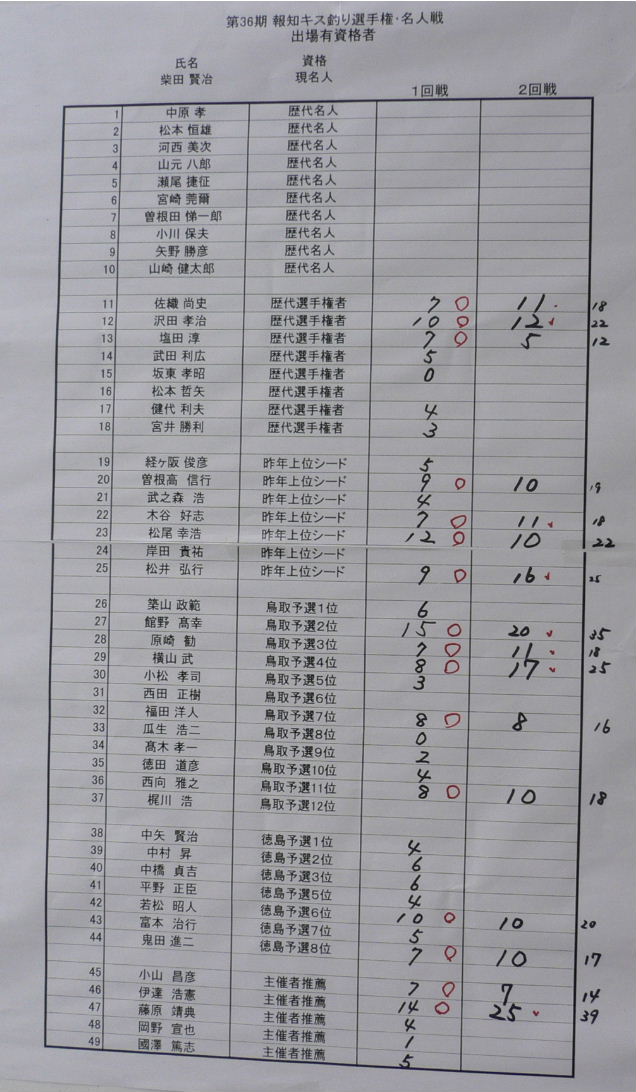 第36期 報知キス釣り選手権・名人戦
出場有資格者
氏名 資格
柴田 賢治 現名人
1回戦 2回戦
1 中原 孝 歴代名人
2 松本 恒雄 歴代名人
3 河西 美次 歴代名人
4 山元 八郎 歴代名人
5 瀬尾 捷征 歴代名人
6 宮崎 莞爾 歴代名人
7 曽根田 悌一郎 歴代名人
8 小川 保夫 歴代名人
9 矢野 勝彦 歴代名人
10 山崎 健太郎 歴代名人
11 佐織 尚史 歴代選手権者 7 ○ 11 18
12 沢田 孝治 歴代選手権者 10 ○ 12 22
13 塩田 淳 歴代選手権者 7 ○ 5 12
14 武田 利広 歴代選手権者 5
15 坂東 孝昭 歴代選手権者 0
16 松本 哲矢 歴代選手権者
17 健代 利夫 歴代選手権者 4
18 宮井 勝利 歴代選手権者 3
19 経ヶ阪 俊彦 昨年上位シード 5
20 曽根高 信行 昨年上位シード 9 ○ 10 19
21 武之森 浩 昨年上位シード 4
22 木谷 好志 昨年上位シード 7 ○ 11 18
23 松尾 幸浩 昨年上位シード 12 ○ 10 22
24 岸田 貴祐 昨年上位シード
25 松井 弘行 昨年上位シード 9 ○ 16 25
26 築山 政範 鳥取予選1位 6
27 館野 髙幸 鳥取予選2位 15 ○ 20 35
28 原崎 勧 鳥取予選3位 7 ○ 11 18
29 横山 武 鳥取予選4位 8 ○ 17 25
30 小松 孝司 鳥取予選5位 3
31 西田 正樹 鳥取予選6位
32 福田 洋人 鳥取予選7位 8 ○ 8 16
33 瓜生 浩二 鳥取予選8位 0
34 髙木 孝一 鳥取予選9位 2
35 徳田 道彦 鳥取予選10位 4
36 西向 雅之 鳥取予選11位 8 ○ 10 18
37 梶川 浩 鳥取予選12位
38 中矢 賢治 徳島予選1位 4
39 中村 昇 徳島予選2位 6
40 中橋 貞吉 徳島予選3位 6
41 平野 正臣 徳島予選5位 4
42 若松 昭人 徳島予選6位 10 ○ 10 20
43 富本 治行 徳島予選7位 5
44 鬼田 進二 徳島予選8位 7 ○ 10 17
45 小山 昌彦 主催者推薦 7 ○ 7 14
46 伊達 浩憲 主催者推薦 14 ○ 25 39
47 藤原 靖典 主催者推薦 4
48 岡野 宣也 主催者推薦 1
49 國澤 篤志 主催者推薦 5